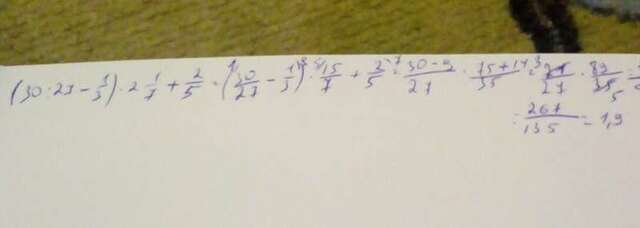 (30:27 - 1/3) · 2 1/7 + 2/5 = (30/27 - 1/3) · 15/7 + 2/5 = 30-9/27 · 75+14/35 = 21/27 · 89/35 =
= 267/135 = 1,9